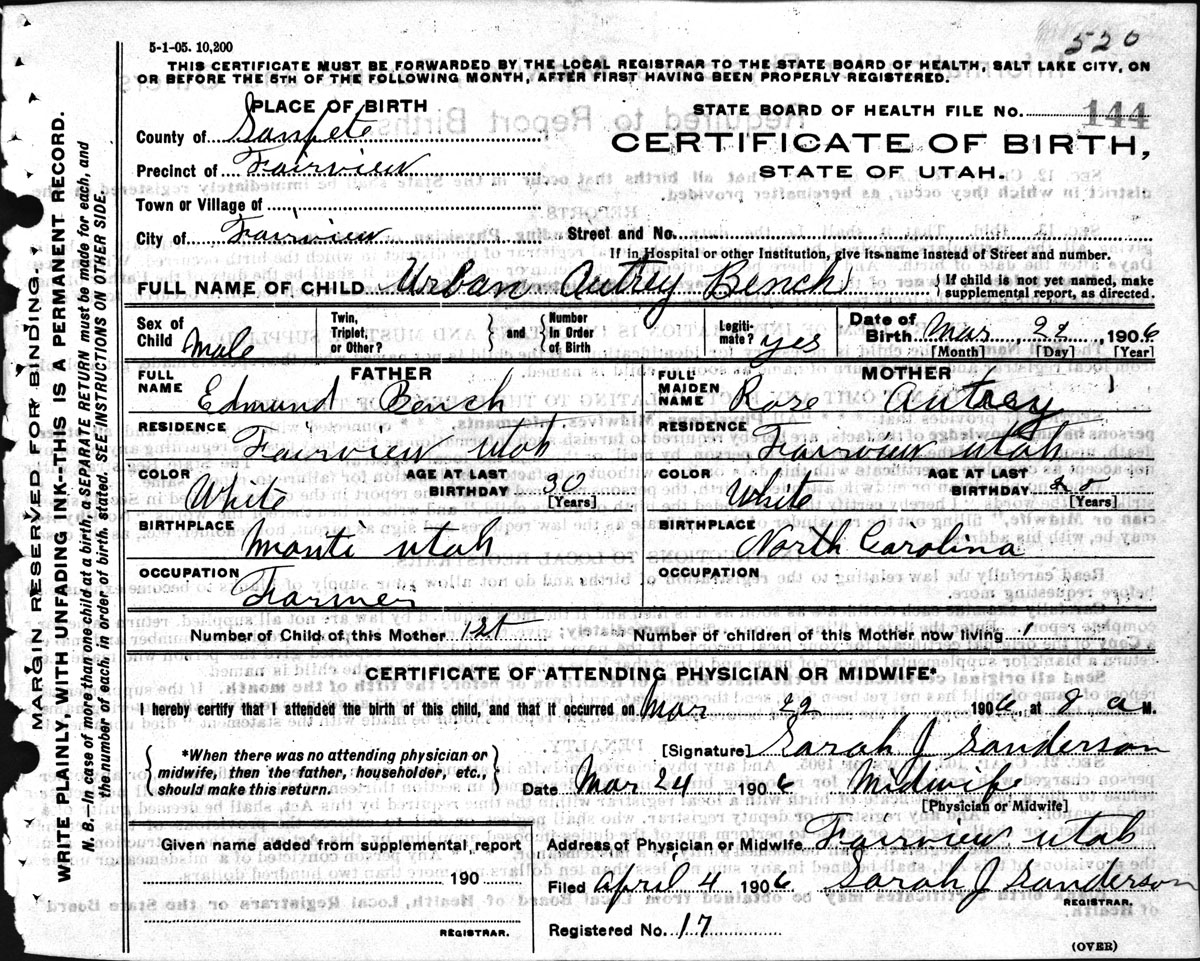 5-1-05. 10,200
520
THIS CERTIFICATE MUST BE FORWARDED BY THE LOCAL REGISTRAR TO THE STATE BOARD OF HEALTH, SALT LAKE CITY, ON
OR BEFORE THE 5TH OF THE FOLLOWING MONTH, AFTER FIRST HAVING BEEN PROPERLY REGISTERED.
PLACE OF BIRTH
County of Sanpete
Precinct of Fairview
Town or Village of
City of Fairview
STATE BOARD OF HEALTH FILE NO. 144
CERTIFICATE OF BIRTH,
STATE OF UTAH.
Street and No.
If in Hospital or other Institution, give its name instead of Street and number.
FULL NAME OF CHILD Urban Autrey Bench
If child is not yet named, make
supplemental report, as directed.
Sex of Child Male
Twin, Triplet, or Other?
and
Number in Order of Birth
Legitimate? yes
Date of Birth Mar 22, 1906
[Month] [Day] [Year]
FATHER
FULL NAME Edmund Bench
RESIDENCE Fairview Utah
COLOR White
AGE AT LAST BIRTHDAY 30 [Years]
BIRTHPLACE Manti Utah
OCCUPATION Farmer
MOTHER
FULL MAIDEN NAME Rose Autrey
RESIDENCE Fairview Utah
COLOR White
AGE AT LAST BIRTHDAY [Years]
BIRTHPLACE North Carolina
OCCUPATION
Number of Child of this Mother 1st
Number of children of this Mother now living 1
CERTIFICATE OF ATTENDING PHYSICIAN OR MIDWIFE*
I hereby certify that I attended the birth of this child, and that it occurred on Mar 22 1906 at 8 a M.
*When there was no attending physician or
midwife, then the father, householder, etc.,
should make this return.
[Signature] Sarah J Sanderson
Date Mar 24 1906 Midwife
[Physician or Midwife]
Given name added from supplemental report
190
REGISTRAR.
Address of Physician or Midwife Fairview Utah
Filed April 4 1906 Sarah J Sanderson
REGISTRAR.
Registered No. 17
(OVER)
MARGIN RESERVED FOR BINDING.
WRITE PLAINLY, WITH UNFADING INK--THIS IS A PERMANENT RECORD.
N. B.--In case of more than one child at a birth, a SEPARATE RETURN must be made for each, and
the number of each, in order of birth, stated. SEE INSTRUCTIONS ON OTHER SIDE.